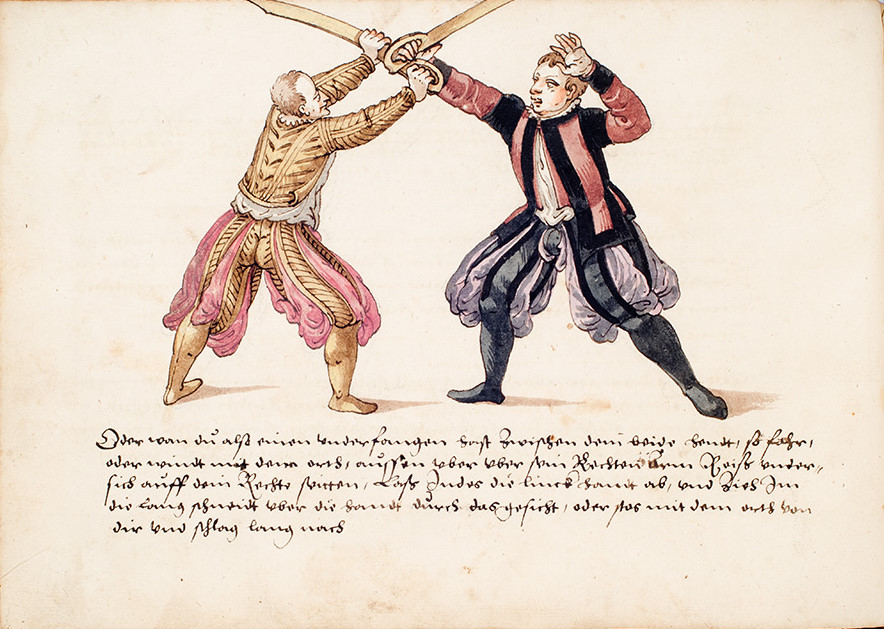 Oder wan du alß einen underfangen hast zwischen dein beide hendt, so fahr,
oder windt mit dem orth, aussen uber uber sein Rechten Arm Reiß under-
sich auff dein Rechte seitten, Laß Indes die linck handt ab, und zieh Im
die lang schneidt uber die handt durch das gesicht, oder stos mit dem orth von
dir und schlag lang nach